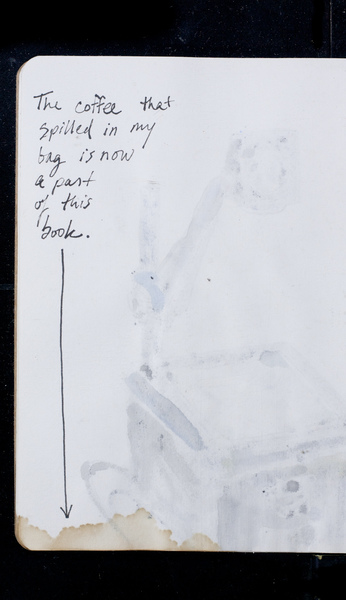 The coffee that
spilled in my
bag is now
a part
of this
book.